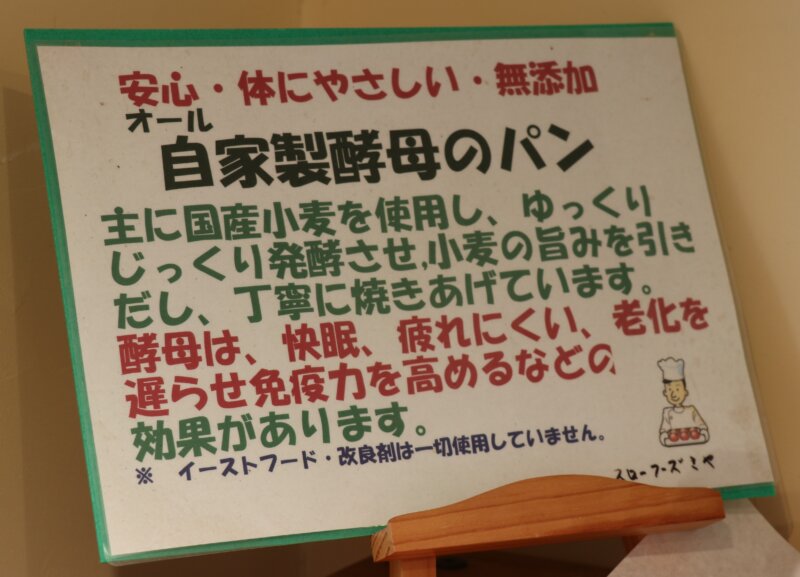 安心・体にやさしい・無添加
オール
自家製酵母のパン
主に国産小麦を使用し、ゆっくり
じっくり発酵させ,小麦の旨みを引き
だし、丁寧に焼きあげています。
酵母は、快眠、疲れにくい、老化を
遅らせ免疫力を高めるなどの
効果があります。
※　イーストフード・改良剤は一切使用していません。
スローフーズミや